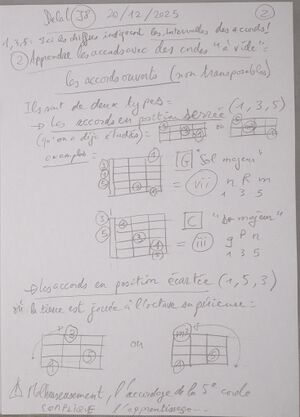 J8 20/12/2025 ②
1,3,5. Ici les chiffres indiquent les intervalles des accords!
② Apprendre les accords avec des cordes "à vide" =
les accords ouverts (non transposables)
Ils sont de deux types =
→ les accords en position serrée (1,3,5)
(qu'on a déjà étudiés) = ou
exemples =
G "Sol majeur"
= vii n R m
1 3 5
C "Do majeur"
= iii g P n
1 3 5
→ les accords en position écartée (1,5,3)
où la tierce est jouée à l'octave supérieure =
ou
⚠ Malheureusement, l'accordage de la 5e corde
COMPLIQUE l'apprentissage...